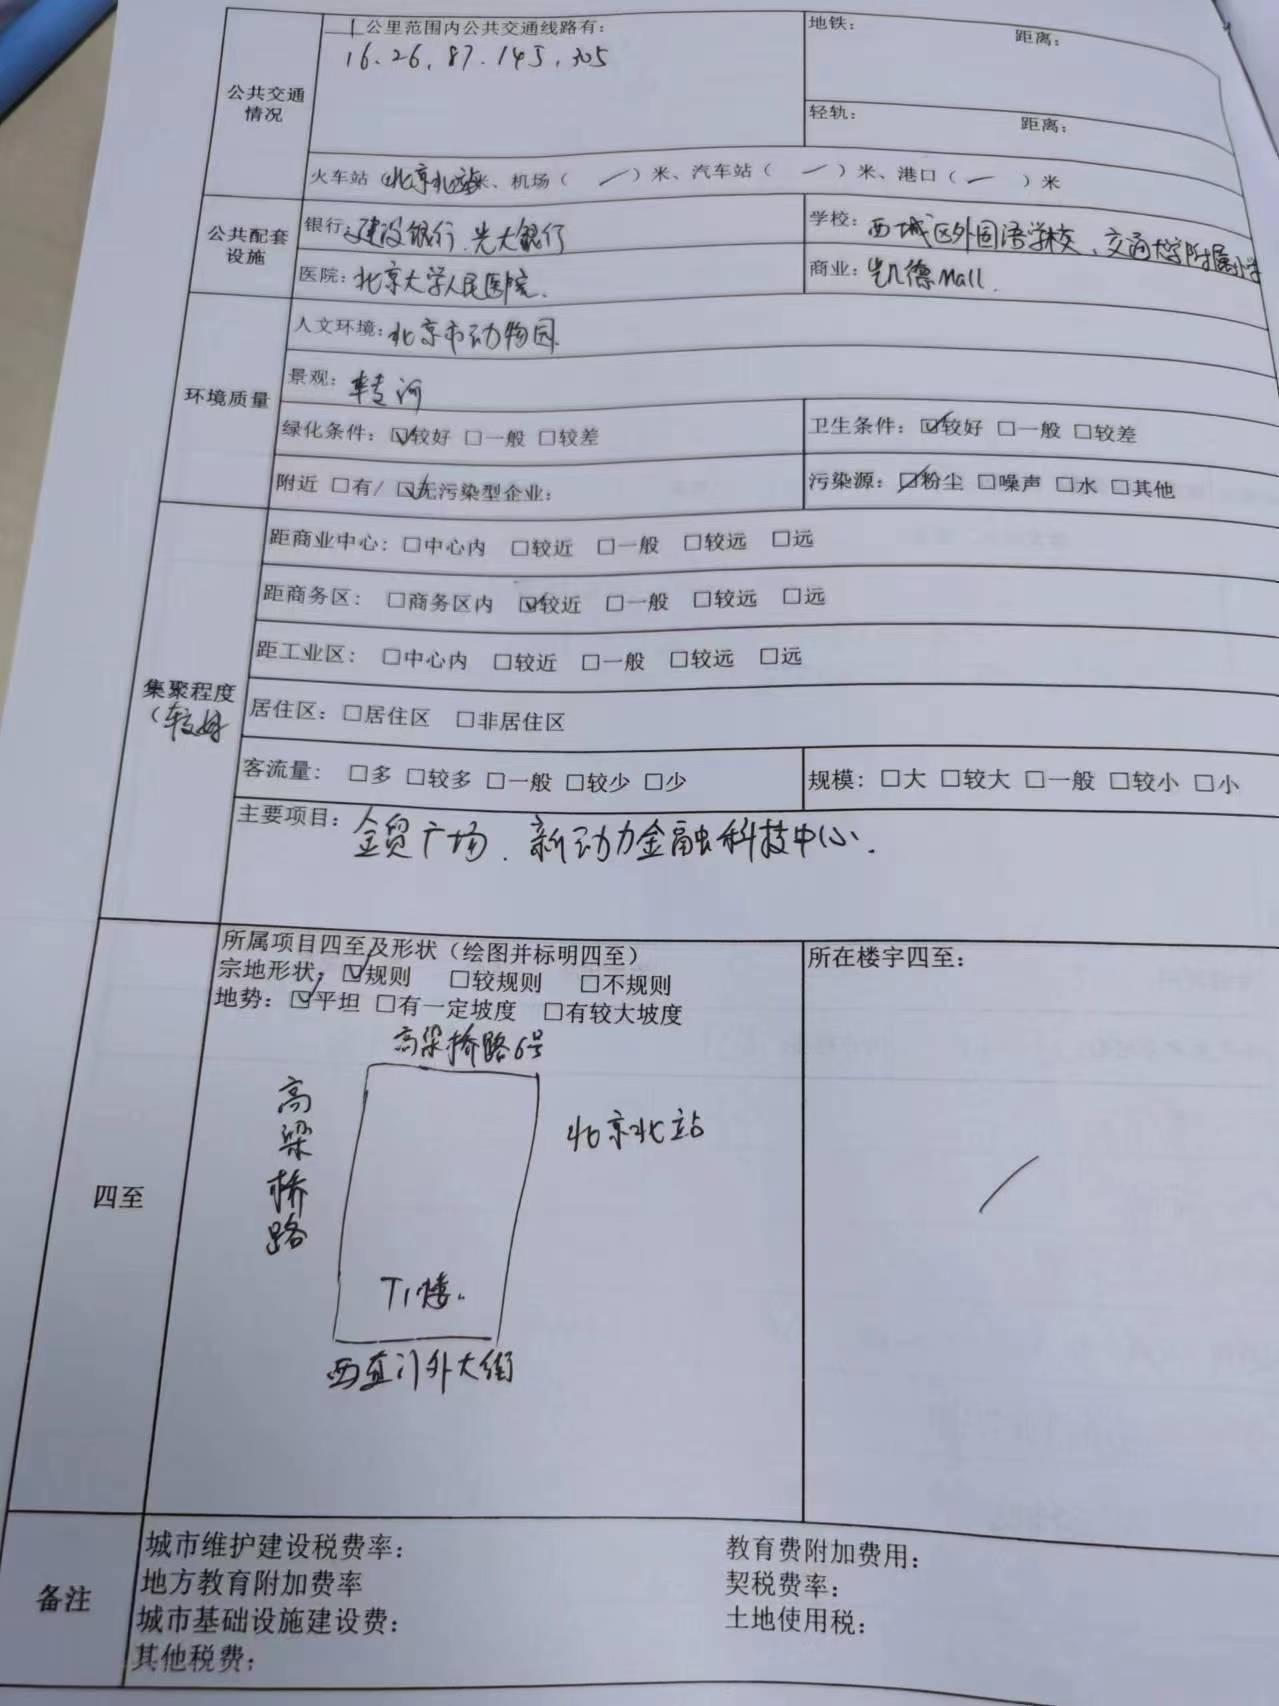 公共交通情况
1公里范围内公共交通线路有：
16.26.87.145.305
地铁： 距离：
轻轨： 距离：
火车站（北京北站米、机场（ — ）米、汽车站（ — ）米、港口（ — ）米
公共配套设施
银行：建设银行.光大银行
学校：西城区外国语学校、交通大学附属小学
医院：北京大学人民医院.
商业：凯德Mall.
环境质量
人文环境：北京市动物园.
景观：转河
绿化条件：☑较好 □一般 □较差
卫生条件：☑较好 □一般 □较差
附近 □有/ ☑无污染型企业：
污染源：☑粉尘 □噪声 □水 □其他
集聚程度
（较好
距商业中心：□中心内 □较近 □一般 □较远 □远
距商务区：□商务区内 ☑较近 □一般 □较远 □远
距工业区：□中心内 □较近 □一般 □较远 □远
居住区：□居住区 □非居住区
客流量：□多 □较多 □一般 □较少 □少
规模：□大 □较大 □一般 □较小 □小
主要项目：金贸广场.新动力金融科技中心.
四至
所属项目四至及形状（绘图并标明四至）
宗地形状：☑规则 □较规则 □不规则
地势：☑平坦 □有一定坡度 □有较大坡度
高梁桥路6号
高梁桥路
北京北站
T1楼.
西直门外大街
所在楼宇四至：
备注
城市维护建设税费率： 教育费附加费用：
地方教育附加费率 契税费率：
城市基础设施建设费： 土地使用税：
其他税费：